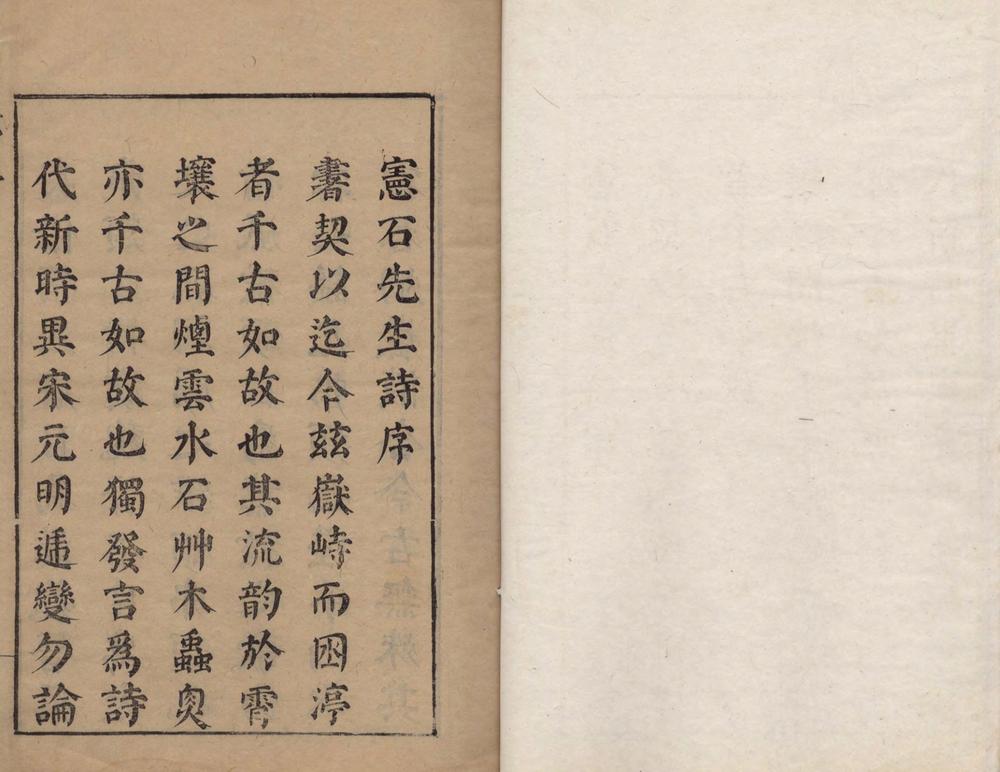 憲石先生詩序
書契以迄今茲嶽峙而囦渟
者千古如故也其流韵於霄
壤之間煙雲水石艸木蟲𩵋
亦千古如故也獨發言爲詩
代新時異宋元明遞變勿論